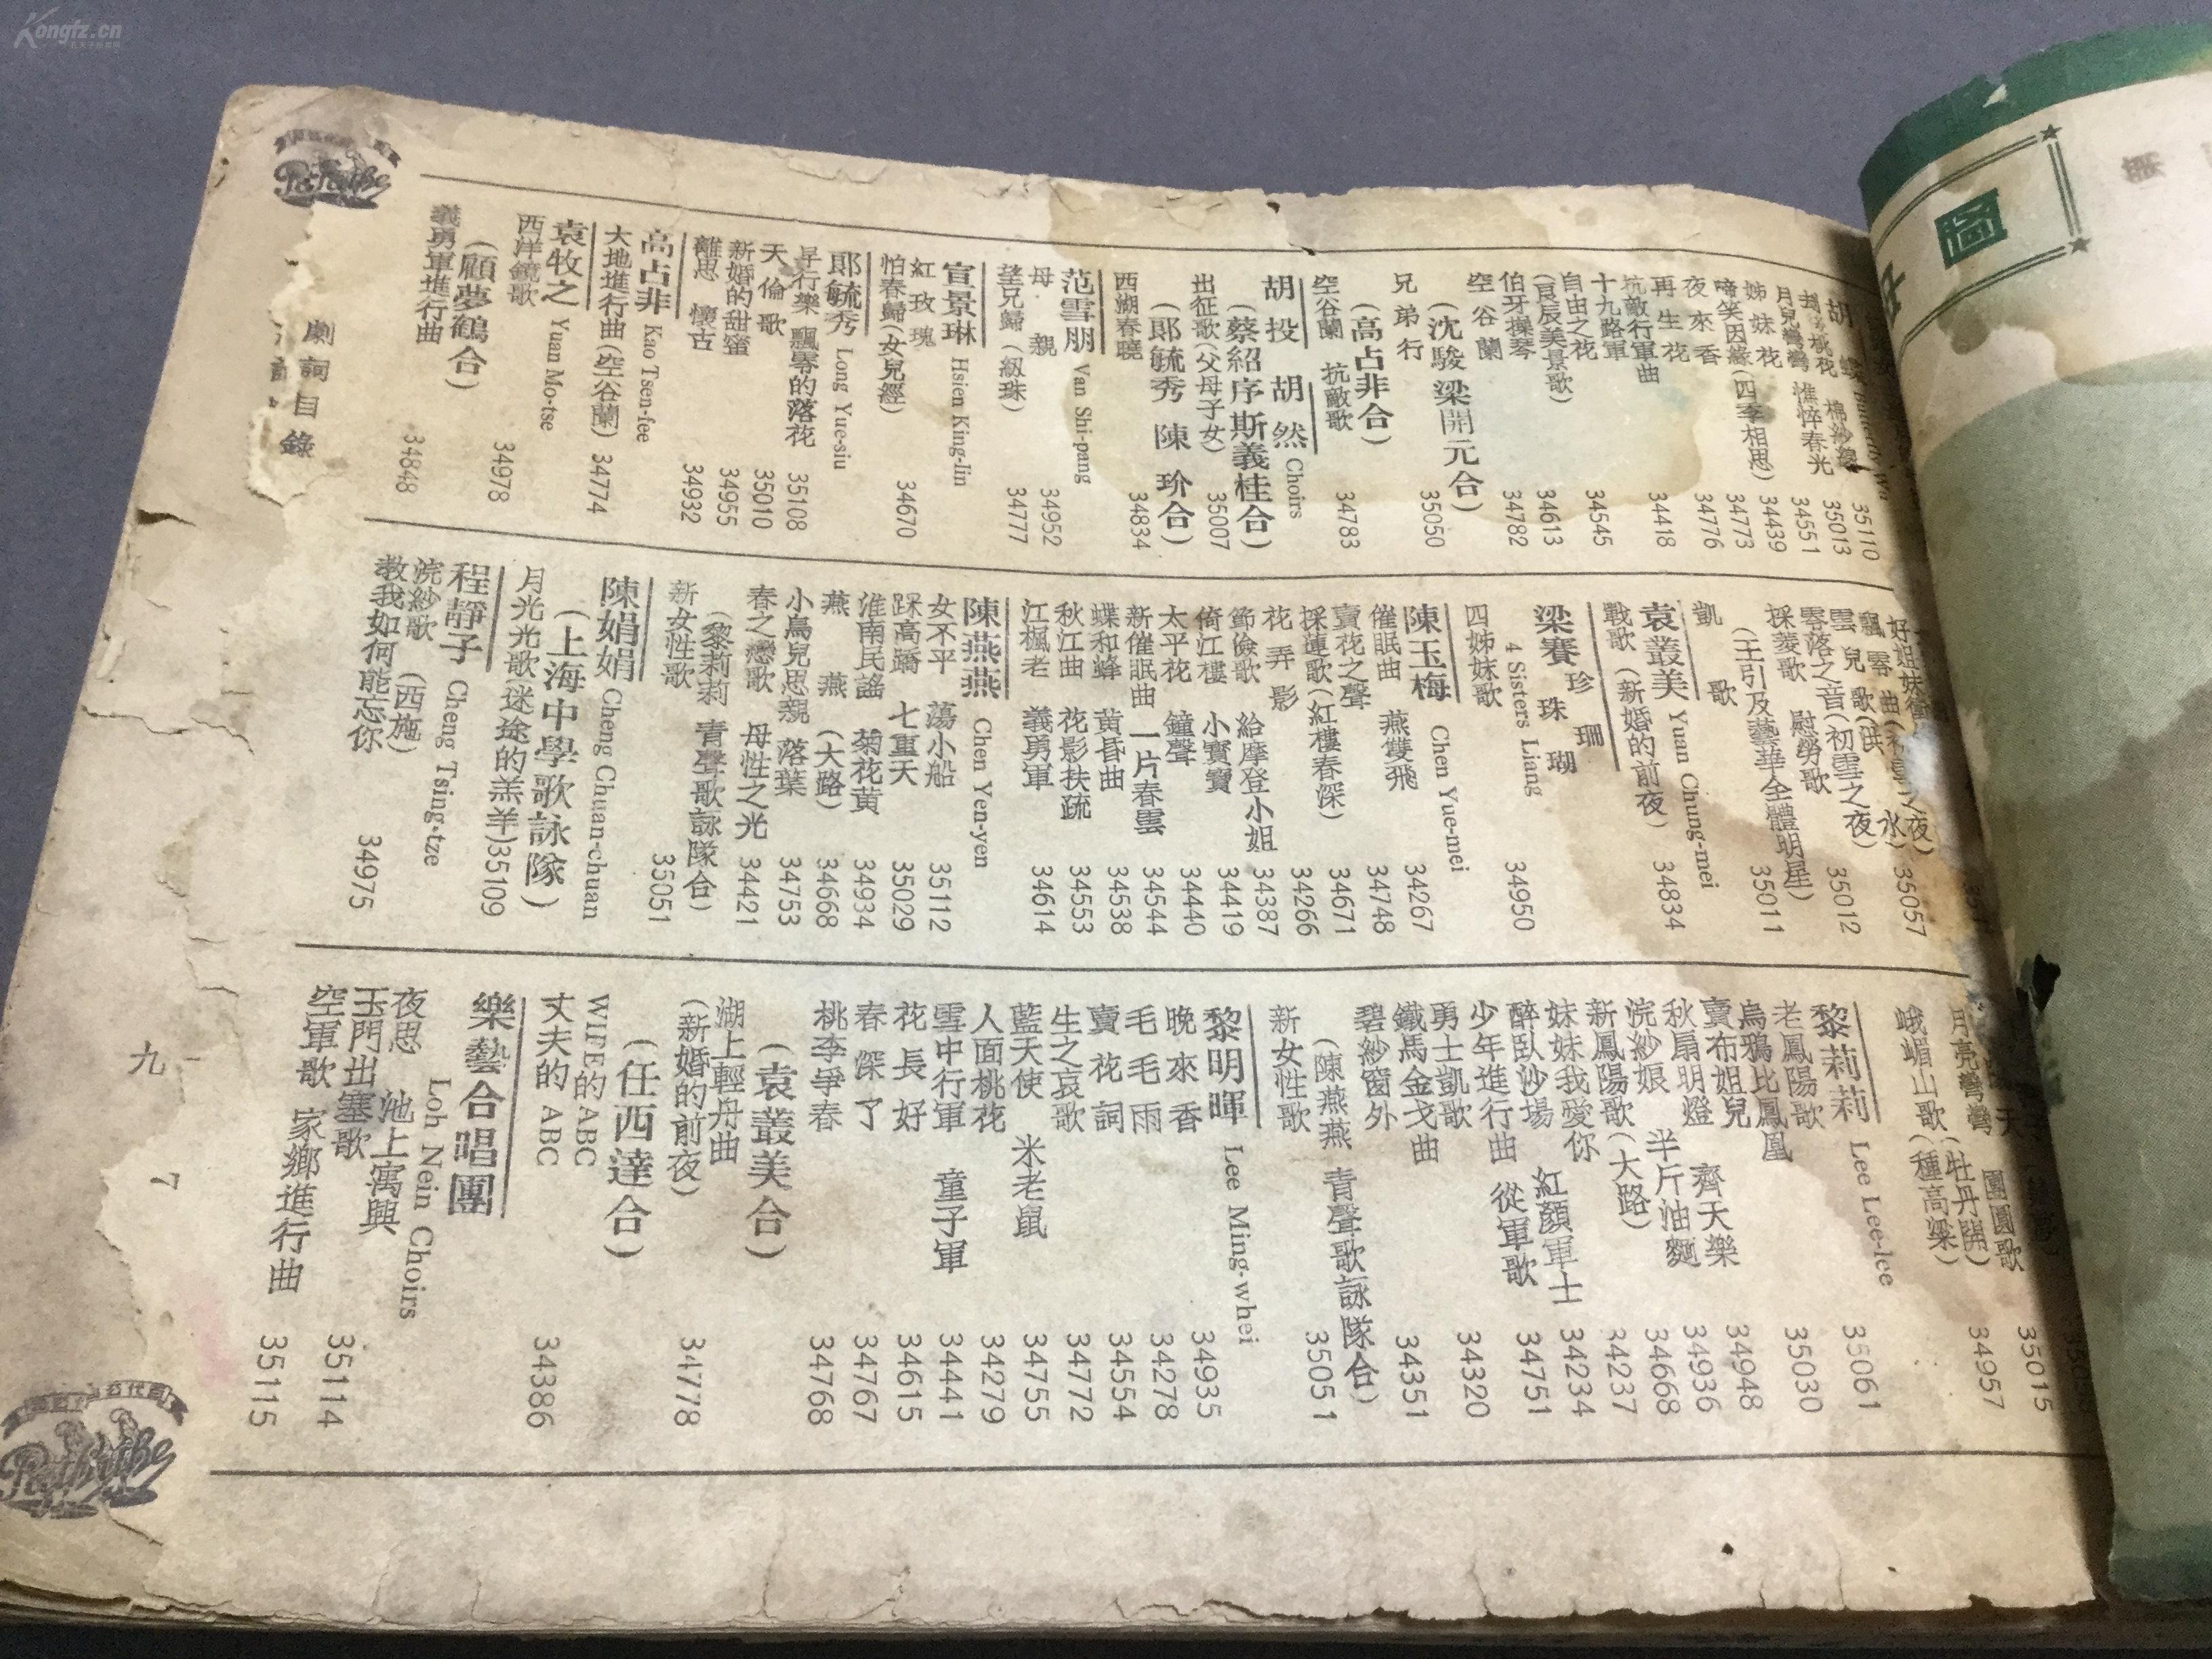 Kongfz.cn
胡蝶 Butterfly Wu
35110
桃花 棉紗線 35013
月兒彎彎 憔悴春光 34551
姊妹花 34439
啼笑因緣(四季相思) 34773
夜來香 34776
再生花
抗敵行軍曲 34418
十九路軍
自由之花 34545
(良辰美景歌) 34613
伯牙操琴 34782
空谷蘭
(沈駿 梁開元合)
兄弟行 35050
(高占非合)
空谷蘭 抗敵歌 34783
胡投 胡然 Choirs
(蔡紹序斯義桂合)
出征歌(父母子女) 35007
(郎毓秀 陳玠合)
西湖春曉 34834
范雪朋 Van Shi-pang
母親 34952
望兄歸(級珠) 34777
宣景琳 Hsien King-lin
紅玫瑰
怕春歸(女兒經) 34670
郎毓秀 Long Yue-siu
早行樂 飄零的落花 35108
天倫歌 35010
新婚的甜蜜 34955
離思 懷古 34932
高占非 Kao Tsen-fee
大地進行曲(空谷蘭) 34774
袁牧之 Yuan Mo-tse
西洋鏡歌 34978
(顧夢鶴合)
義勇軍進行曲 34848
劇詞目錄
飄零曲
雲兒歌(洪水) 35057
零落之音(初雪之夜)
採菱歌 慰勞歌 35012
(王引及藝華全體明星)
35011
凱歌
袁叢美 Yuan Chung-mei
戰歌(新婚的前夜) 34834
梁賽珍珠珊瑚
4 Sisters Liang
四姊妹歌 34950
陳玉梅 Chen Yue-mei
催眠曲 燕雙飛 34267
賣花之聲 34748
採蓮歌(紅樓春深) 34671
花弄影 34266
節儉歌 給摩登小姐 34387
倚江樓 小寶寶 34419
太平花 鐘聲 34440
新催眠曲 一片春雲 34544
蝶和蜂 黃昏曲 34538
秋江曲 花影扶疏 34553
江楓老 義勇軍 34614
陳燕燕 Chen Yen-yen
女不平 蕩小船 35112
踩高蹻 七重天 35029
淮南民謠 菊花黃 34934
燕燕(大路) 34668
小鳥兒思親 落葉 34753
春之戀歌 母性之光 34421
(黎莉莉 青聲歌詠隊合)
新女性歌 35051
陳娟娟 Cheng Chuan-chuan
(上海中學歌詠隊)
月光光歌(迷途的羔羊)35109
程靜子 Cheng Tsing-tze
浣紗歌(西施)
教我如何能忘你 34975
35015
月亮彎彎(牡丹開) 團圓歌
峨嵋山歌(種高粱) 34957
黎莉莉 Lee Lee-lee
老鳳陽歌 35061
烏鴉比鳳凰 35030
賣布姐兒 齊天樂 34948
秋扇明燈 34936
浣紗娘 半斤油麵 34668
新鳳陽歌(大路) 34237
妹妹我愛你 34234
醉臥沙場 紅顏軍士 34751
少年進行曲 從軍歌
勇士凱歌 34320
鐵馬金戈曲
碧紗窗外 34351
(陳燕燕 青聲歌詠隊合)
新女性歌 35051
黎明暉 Lee Ming-whei
晚來香 34935
毛毛雨 34278
賣花詞 34554
生之哀歌 34772
藍天使 米老鼠 34755
人面桃花 34279
雪中行軍 童子軍 34441
花長好 34615
春深了 34767
桃李爭春 34768
(袁叢美合)
湖上輕舟曲
(新婚的前夜) 34778
(任西達合)
WIFE的ABC
丈夫的ABC 34386
樂藝合唱團
Loh Nein Choirs
夜思 池上寓興
玉門出塞歌 35114
空軍歌 家鄉進行曲 35115
九
7